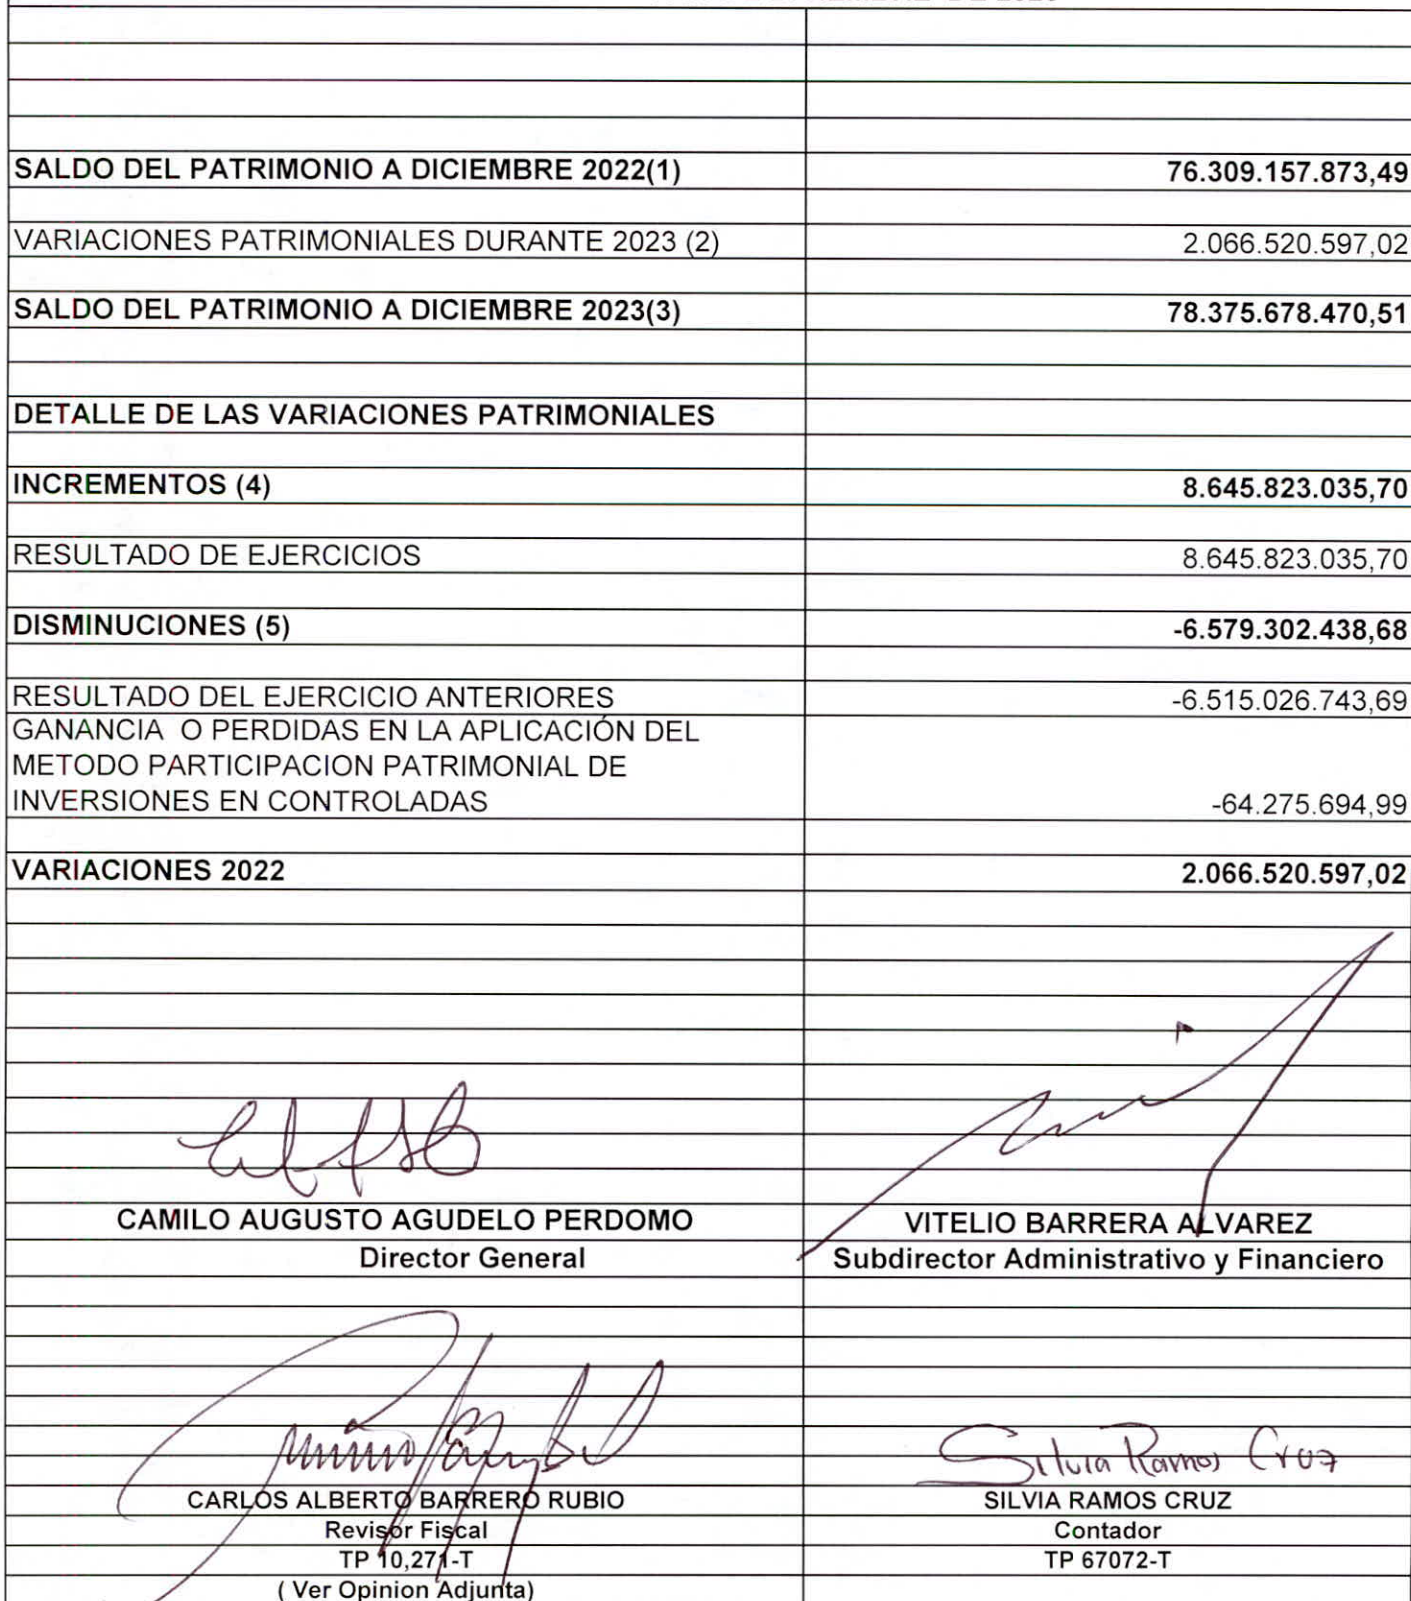 SALDO DEL PATRIMONIO A DICIEMBRE 2022(1) 76.309.157.873,49
VARIACIONES PATRIMONIALES DURANTE 2023 (2) 2.066.520.597,02
SALDO DEL PATRIMONIO A DICIEMBRE 2023(3) 78.375.678.470,51
DETALLE DE LAS VARIACIONES PATRIMONIALES
INCREMENTOS (4) 8.645.823.035,70
RESULTADO DE EJERCICIOS 8.645.823.035,70
DISMINUCIONES (5) -6.579.302.438,68
RESULTADO DEL EJERCICIO ANTERIORES -6.515.026.743,69
GANANCIA O PERDIDAS EN LA APLICACIÓN DEL
METODO PARTICIPACION PATRIMONIAL DE
INVERSIONES EN CONTROLADAS -64.275.694,99
VARIACIONES 2022 2.066.520.597,02
CAMILO AUGUSTO AGUDELO PERDOMO VITELIO BARRERA ALVAREZ
Director General Subdirector Administrativo y Financiero
Silvia Ramos Cruz
CARLOS ALBERTO BARRERO RUBIO SILVIA RAMOS CRUZ
Revisor Fiscal Contador
TP 10,271-T TP 67072-T
( Ver Opinion Adjunta)